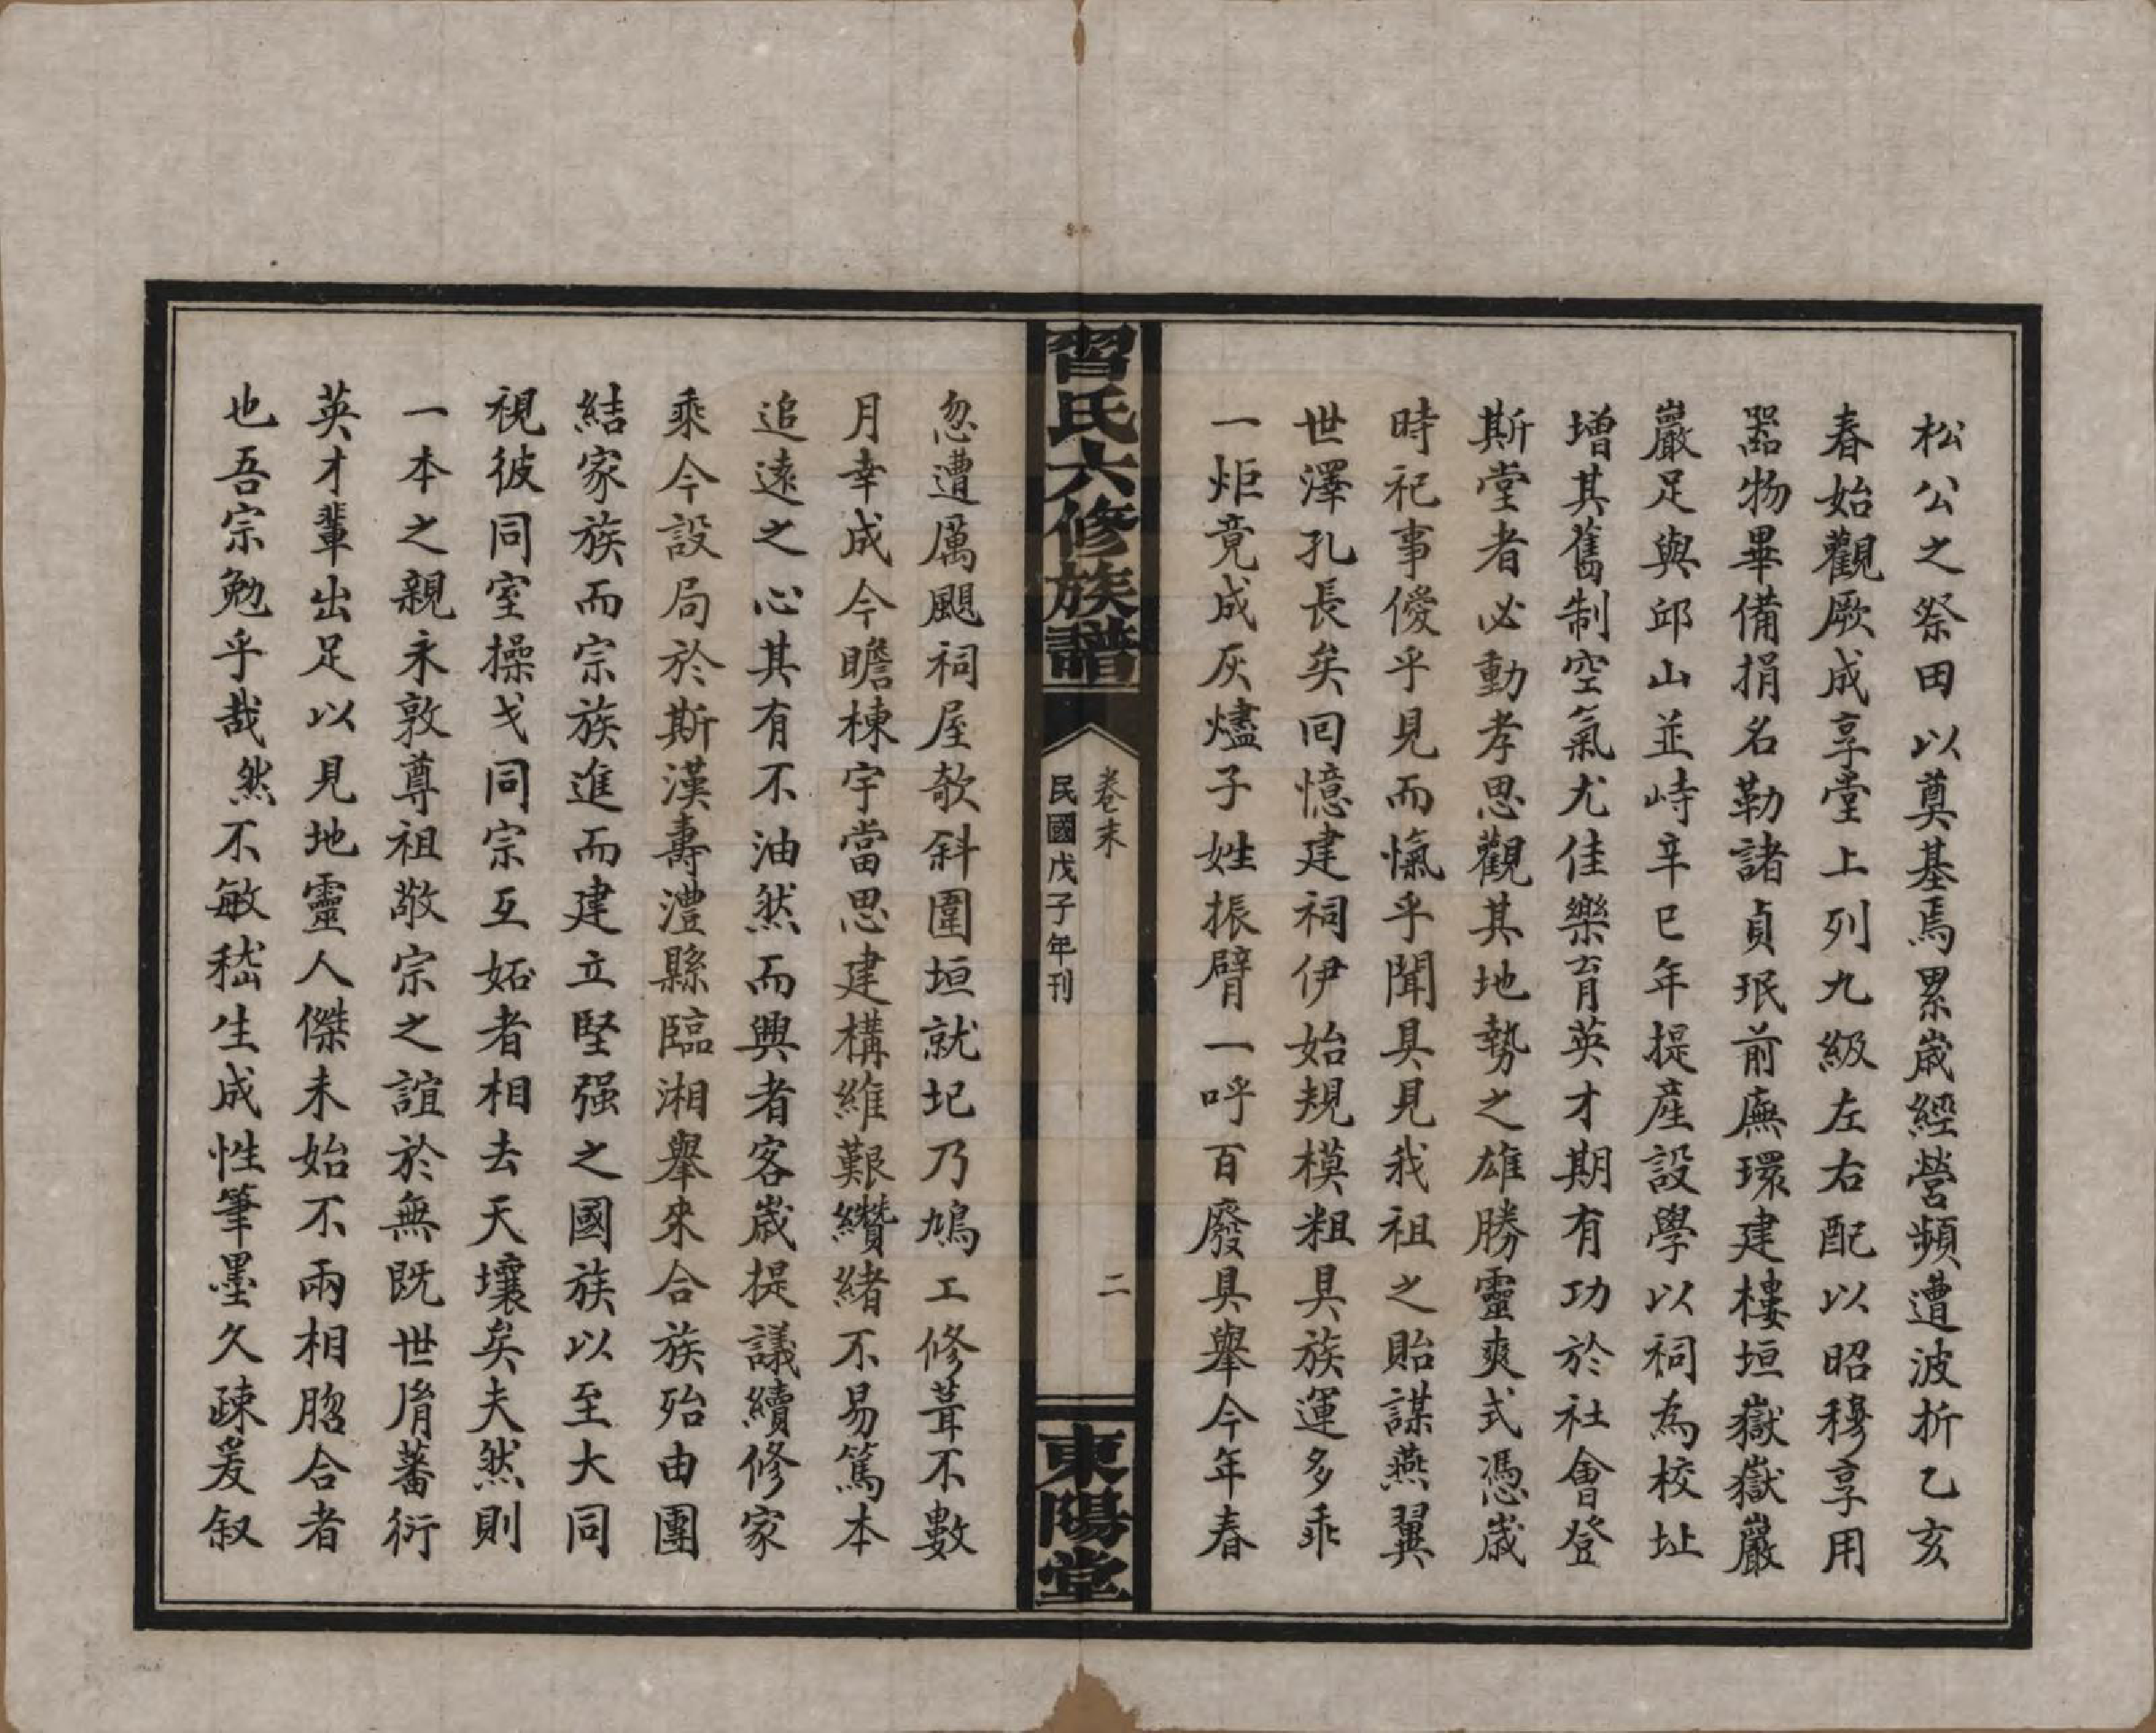 松公之祭田以奠基焉累歲經營頻遭波折乙亥
春始觀厥成享堂上列九級左右配以昭穆享用
器物畢備捐名勒諸貞珉前廡環建樓垣嶽嶽巖
巖足與邱山並峙辛巳年提産設學以祠為校址
增其舊制空氣尤佳樂育英才期有功於社會登
斯堂者必動孝思觀其地勢之雄勝靈爽式憑歲
時祀事僾乎見而愾乎聞具見我祖之貽謀燕翼
世澤孔長矣回憶建祠伊始規模粗具族運多乖
一炬竟成灰燼子姓振臂一呼百廢具舉今年春
習氏六修族譜
卷末
二
民國戊子年刊
東陽堂
忽遭厲颶祠屋欹斜圍垣就圮乃鳩工修葺不數
月幸成今瞻棟宇當思建構維艱纘緒不易篤本
追遠之心其有不油然而興者客歲提議續修家
乘今設局於斯漢壽澧縣臨湘舉來合族殆由團
結家族而宗族進而建立堅强之國族以至大同
視彼同室操戈同宗互妬者相去天壤矣夫然則
一本之親永敦尊祖敬宗之誼於無既世胤蕃衍
英才輩出足以見地靈人傑未始不兩相脗合者
也吾宗勉乎哉然不敏嵇生成性筆墨久疎爰叙